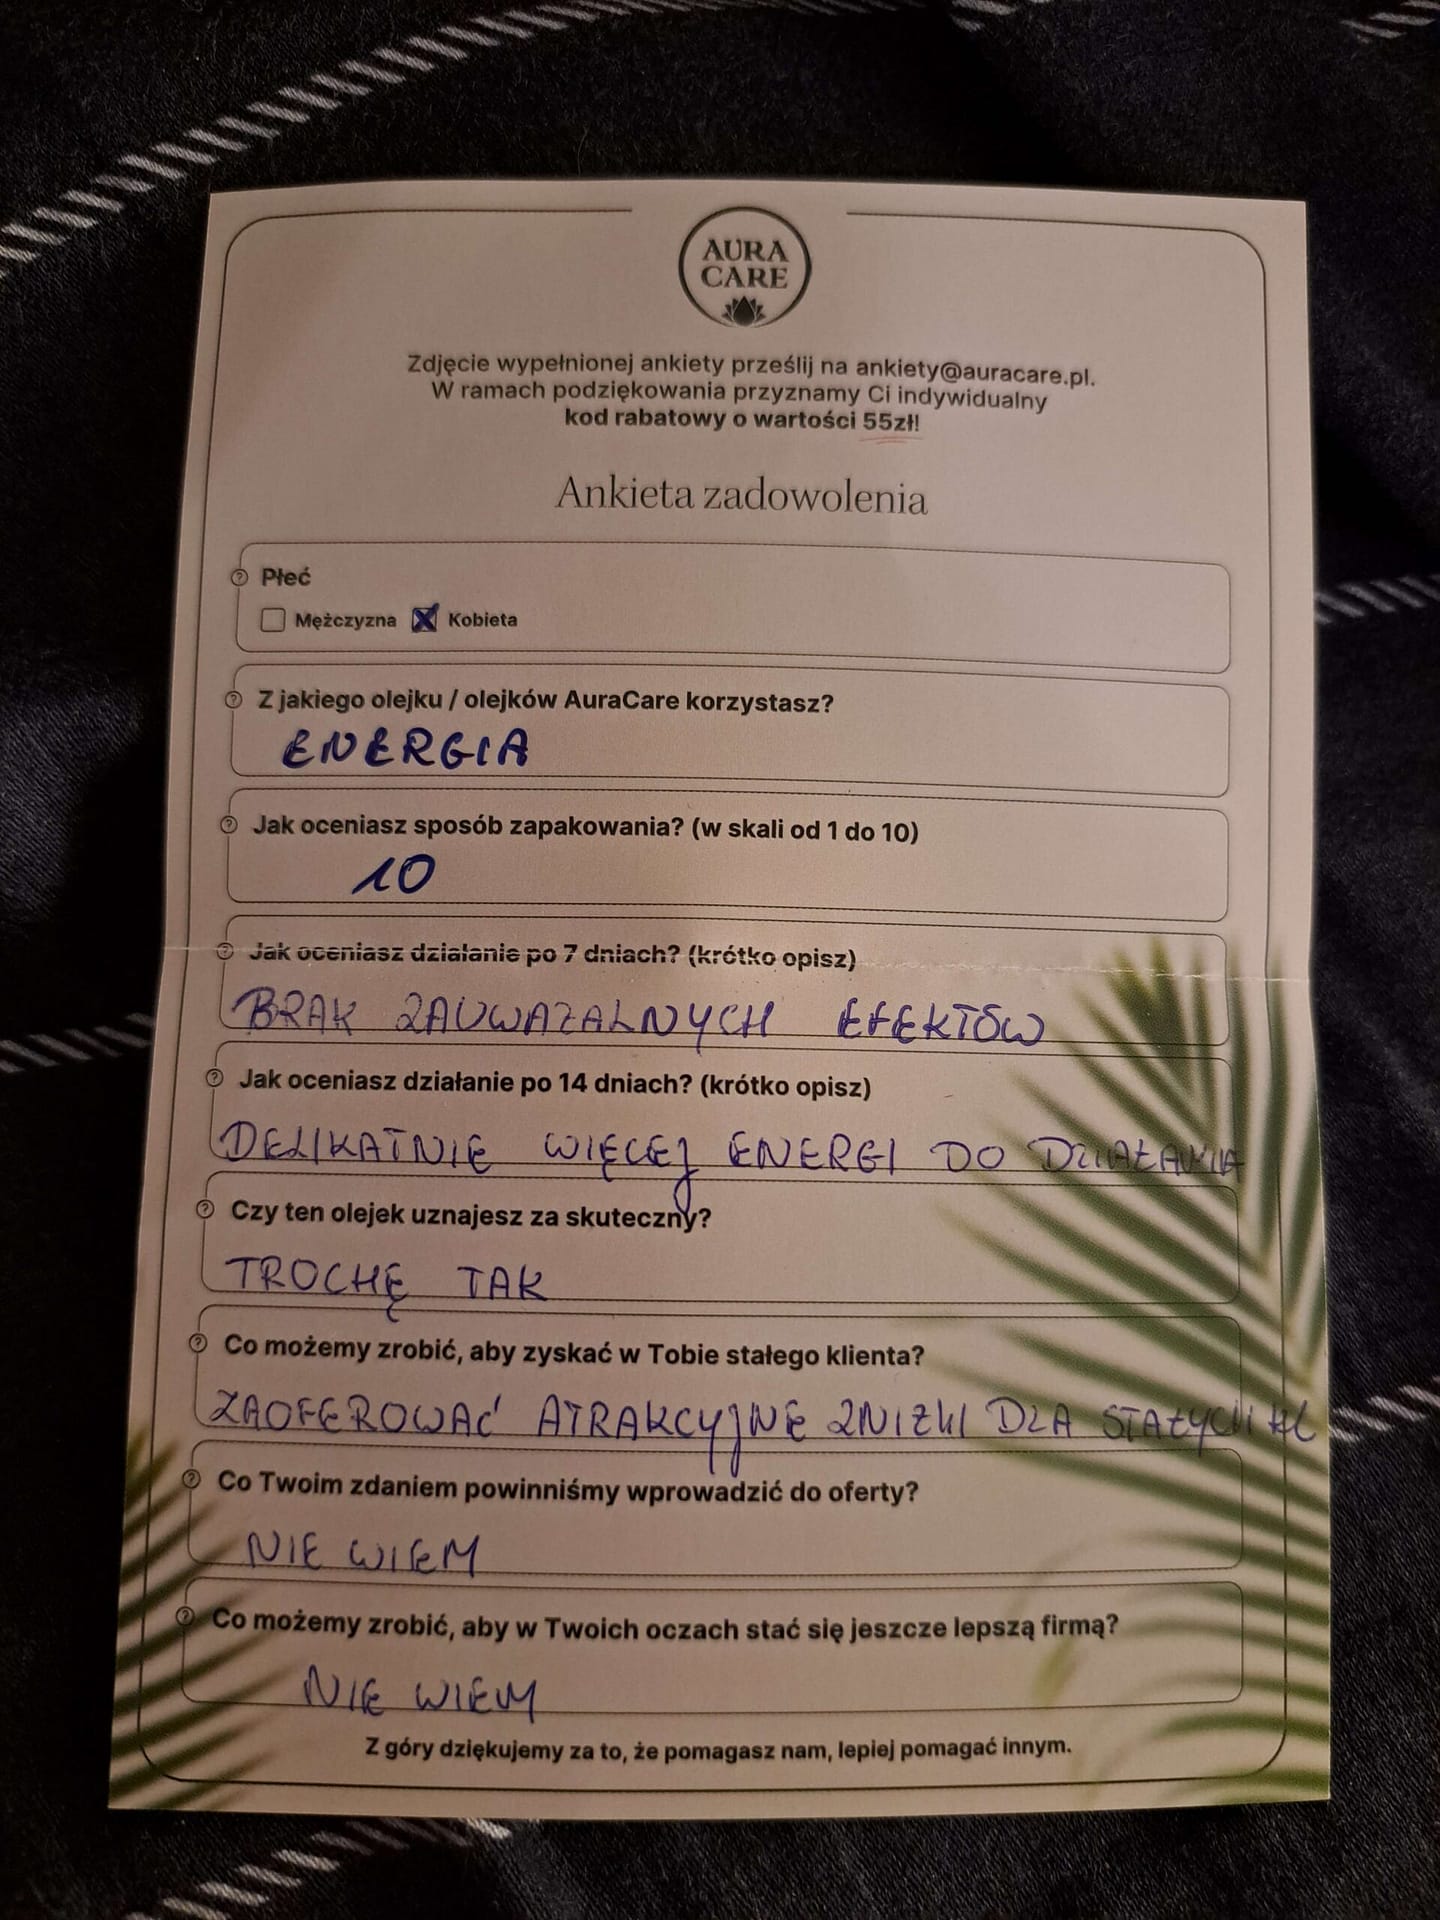 AURA
CARE
Zdjęcie wypełnionej ankiety prześlij na ankiety@auracare.pl.
W ramach podziękowania przyznamy Ci indywidualny
kod rabatowy o wartości 55zł!
Ankieta zadowolenia
Płeć
Mężczyzna Kobieta
Z jakiego olejku / olejków AuraCare korzystasz?
ENERGIA
Jak oceniasz sposób zapakowania? (w skali od 1 do 10)
10
Jak oceniasz działanie po 7 dniach? (krótko opisz)
BRAK ZAUWAŻALNYCH EFEKTÓW
Jak oceniasz działanie po 14 dniach? (krótko opisz)
DELIKATNIE WIĘCEJ ENERGI DO DZIAŁANIA
Czy ten olejek uznajesz za skuteczny?
TROCHĘ TAK
Co możemy zrobić, aby zyskać w Tobie stałego klienta?
ZAOFEROWAĆ ATRAKCYJNE ZNIŻKI DLA STAŁYCH KL
Co Twoim zdaniem powinniśmy wprowadzić do oferty?
NIE WIEM
Co możemy zrobić, aby w Twoich oczach stać się jeszcze lepszą firmą?
NIE WIEM
Z góry dziękujemy za to, że pomagasz nam, lepiej pomagać innym.